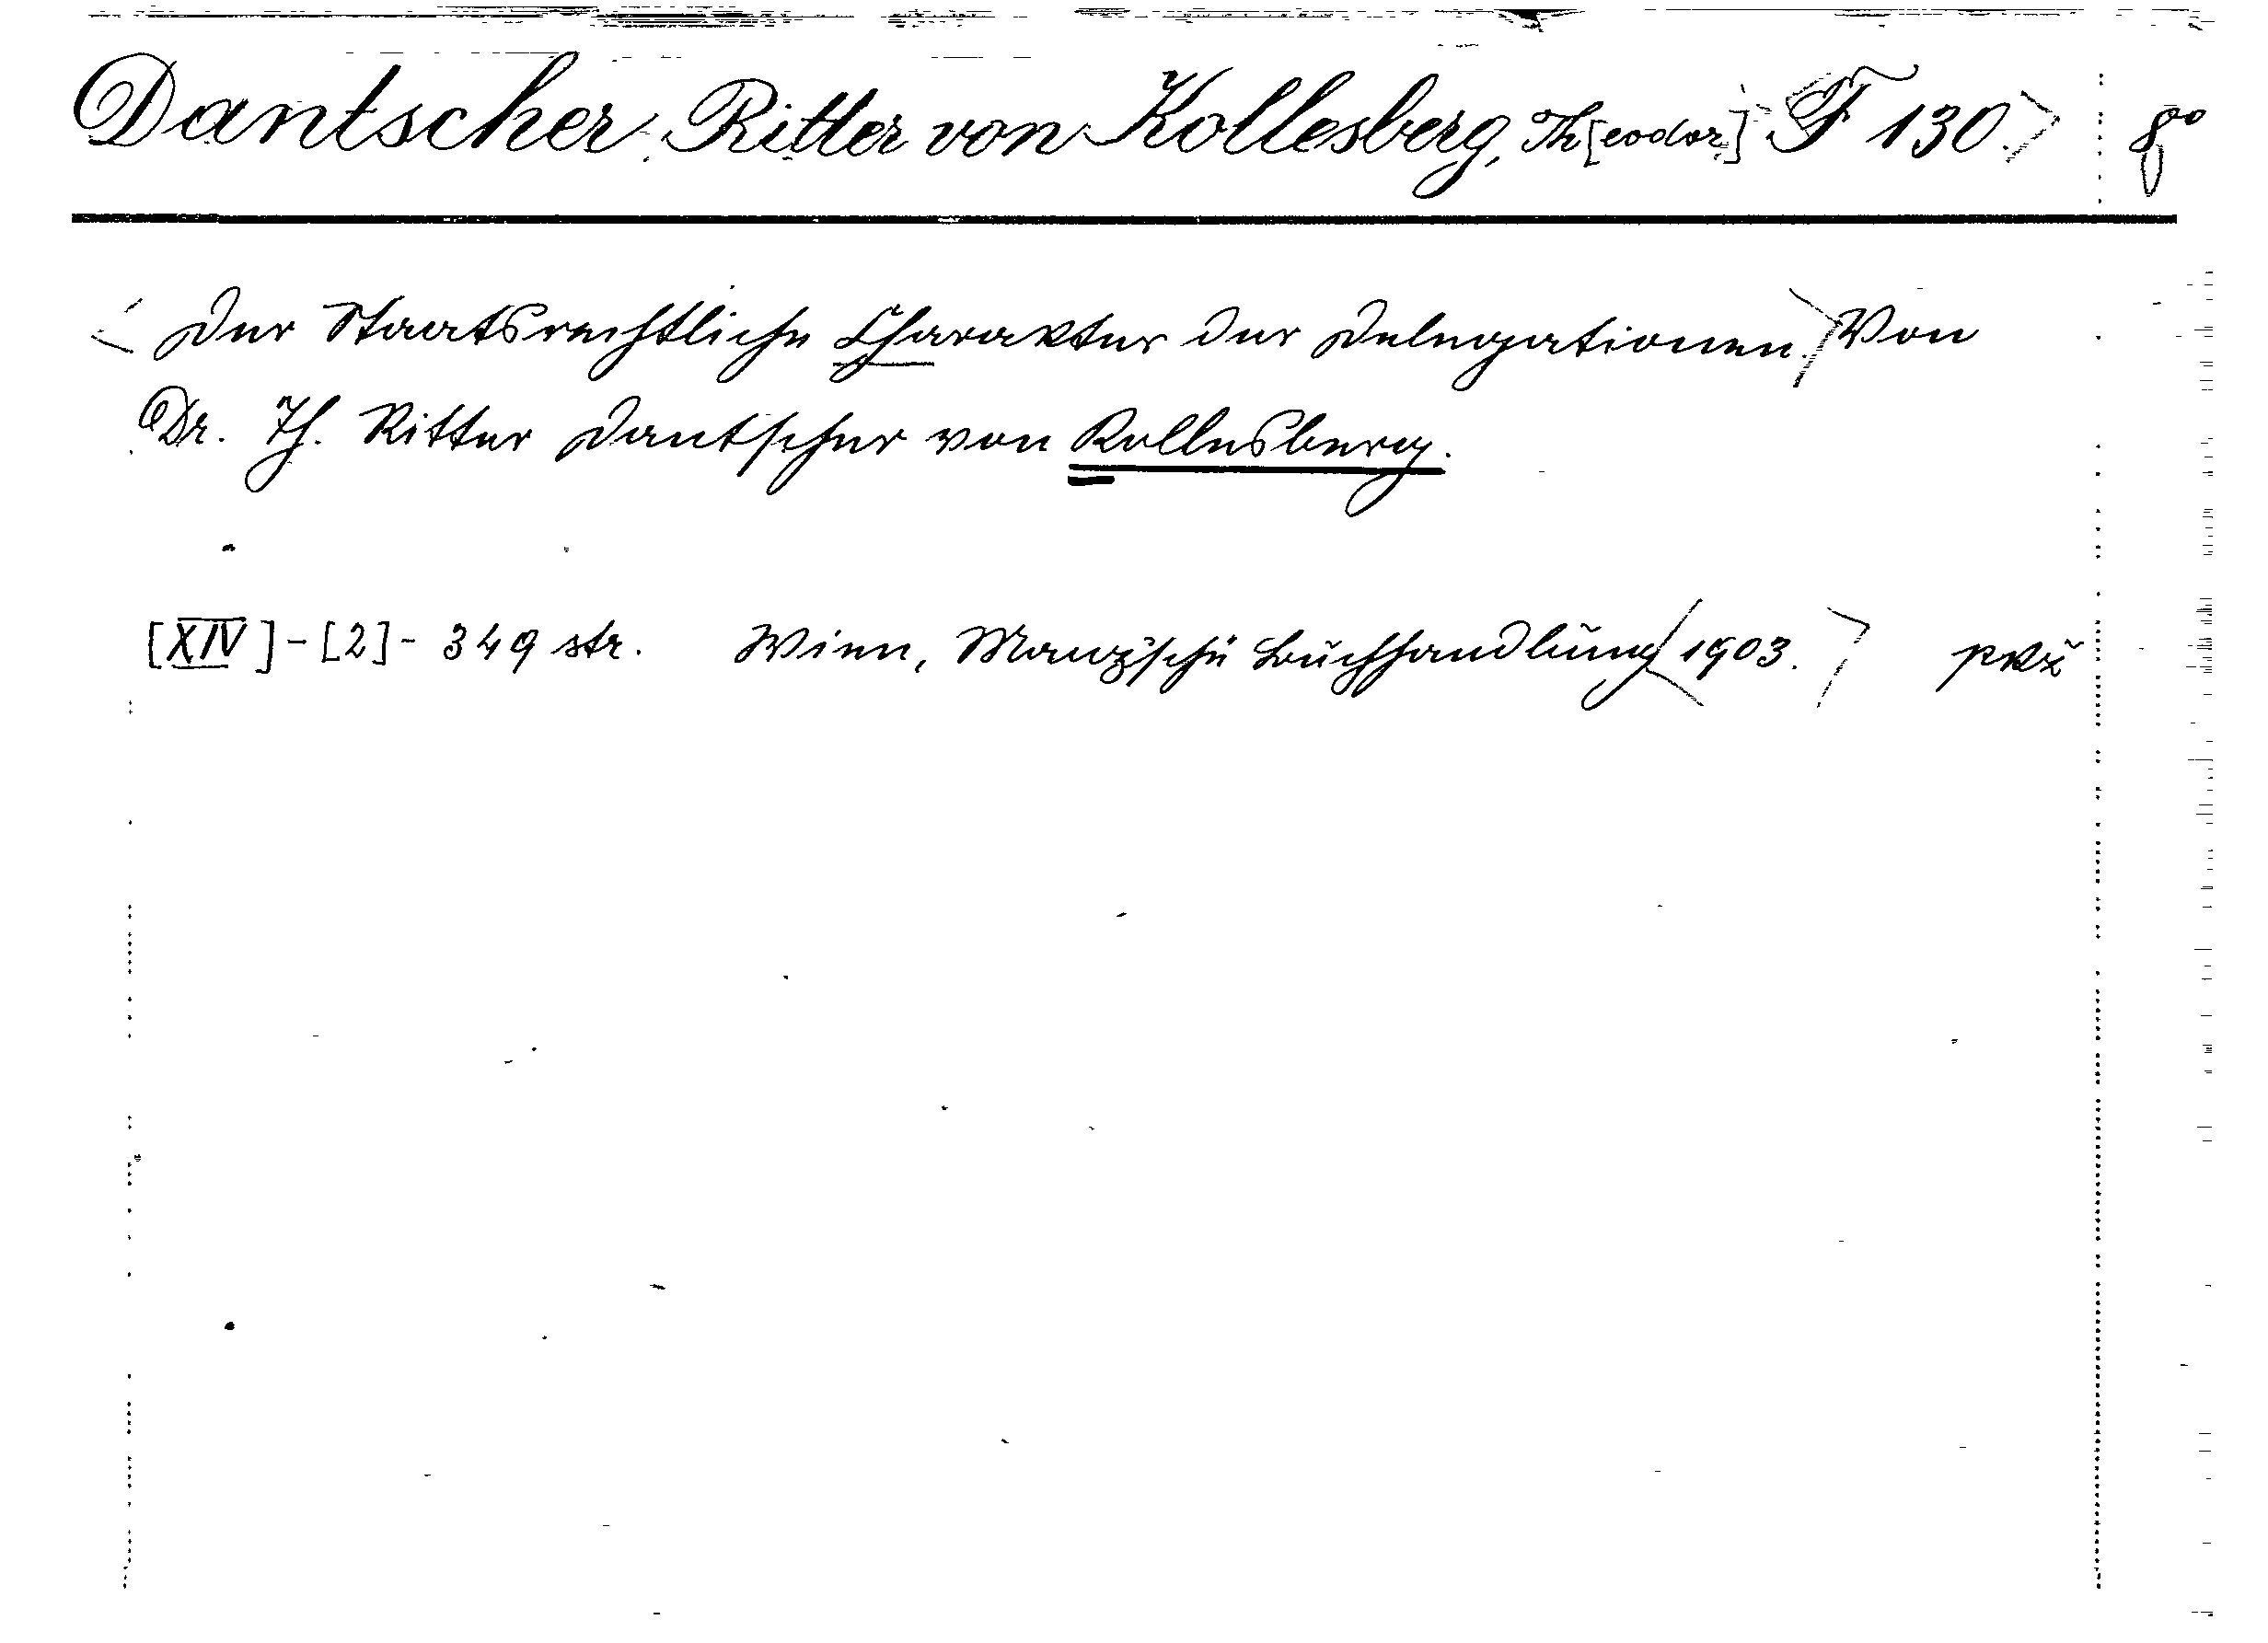 Dantscher, Ritter von Kollesberg, Th[eodor.] F 130. 8°
Der Staatsrechtliche Charakter der Delegationen. Von
Dr. Th. Ritter Dantscher von Kollesberg.
[XIV]-[2]- 349 str. Wien, Manz'sche Buchhandlung 1903.